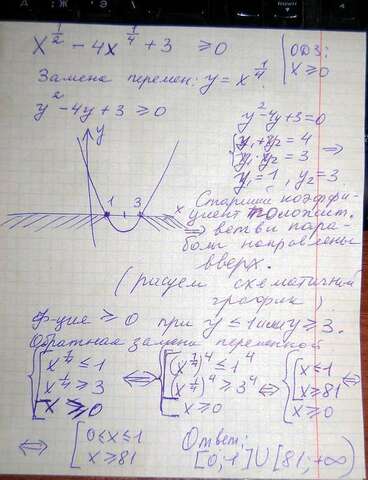 x^{1/2} - 4x^{1/4} + 3 ≥ 0
ОДЗ:
x ≥ 0
Замена перемен: y = x^{1/4}
y^2 - 4y + 3 ≥ 0
y^2 - 4y + 3 = 0
{ y_1 + y_2 = 4
y_1 · y_2 = 3 ⇒
y_1 = 1, y_2 = 3
y
1 3
x
Старший коэффи-
циент положит.
⇒ ветви пара-
болы направлены
вверх.
(рисуем схематичный
график)
Ф-ция ≥ 0 при y ≤ 1 или y ≥ 3.
Обратная замена переменной
{ [ x^{1/4} ≤ 1
x^{1/4} ≥ 3
x ≥ 0
⇔ { [ (x^{1/4})^4 ≤ 1^4
(x^{1/4})^4 ≥ 3^4
x ≥ 0
⇔ { [ x ≤ 1
x ≥ 81
x ≥ 0 ⇔
⇔ [ 0 ≤ x ≤ 1
x ≥ 81
Ответ:
[0; 1] ∪ [81; +∞)